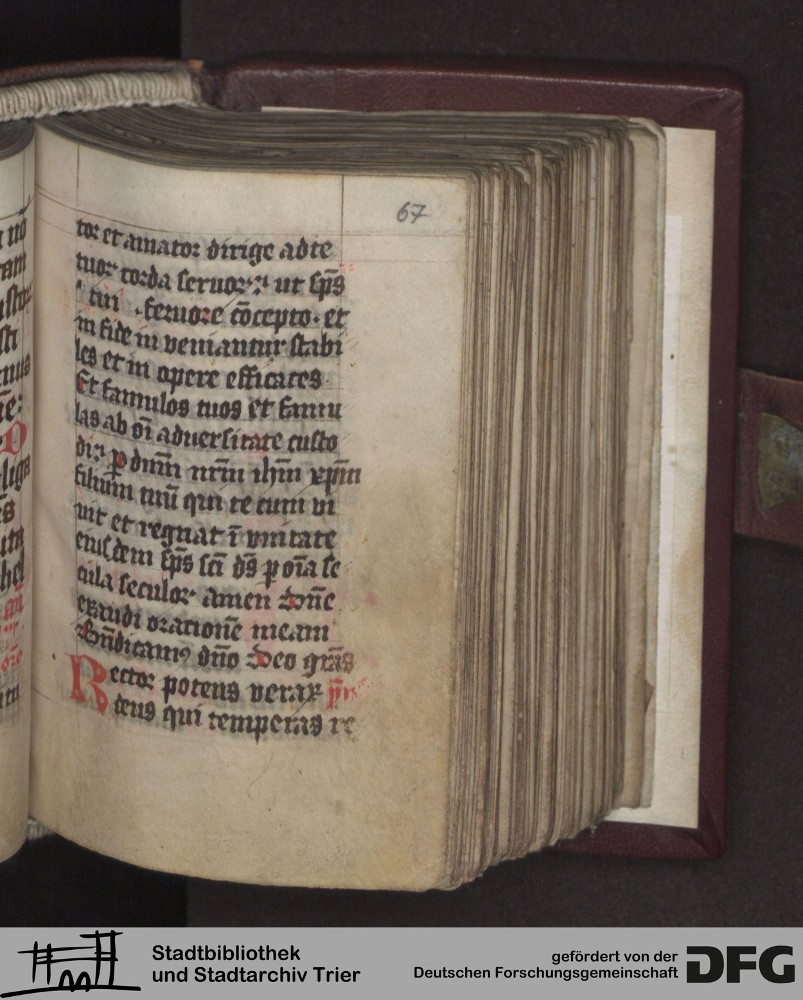 67
tor et amator dirige ad te
tuor corda seruor ut sp̄s
tui feruore cōcepto. et
in fide in veniantur stabi
les et in opere efficaces
Et famulos tuos et famu
las ab oī aduersitate custo
di: ꝑ dnm̄ nrm̄ ihm̄ xp̄m
filium tuū qui te cum vi
uit et regnat ī vnitate
eiusdem sp̄s sc̄i ds̄ ꝑ oīa se
cula seculor amen Dn̄e
exaudi orationē meam
Bn̄dicamꝰ dn̄o Deo grās
Rector potens verax
deus qui temperas re
Stadtbibliothek
und Stadtarchiv Trier
gefördert von der
Deutschen Forschungsgemeinschaft
DFG